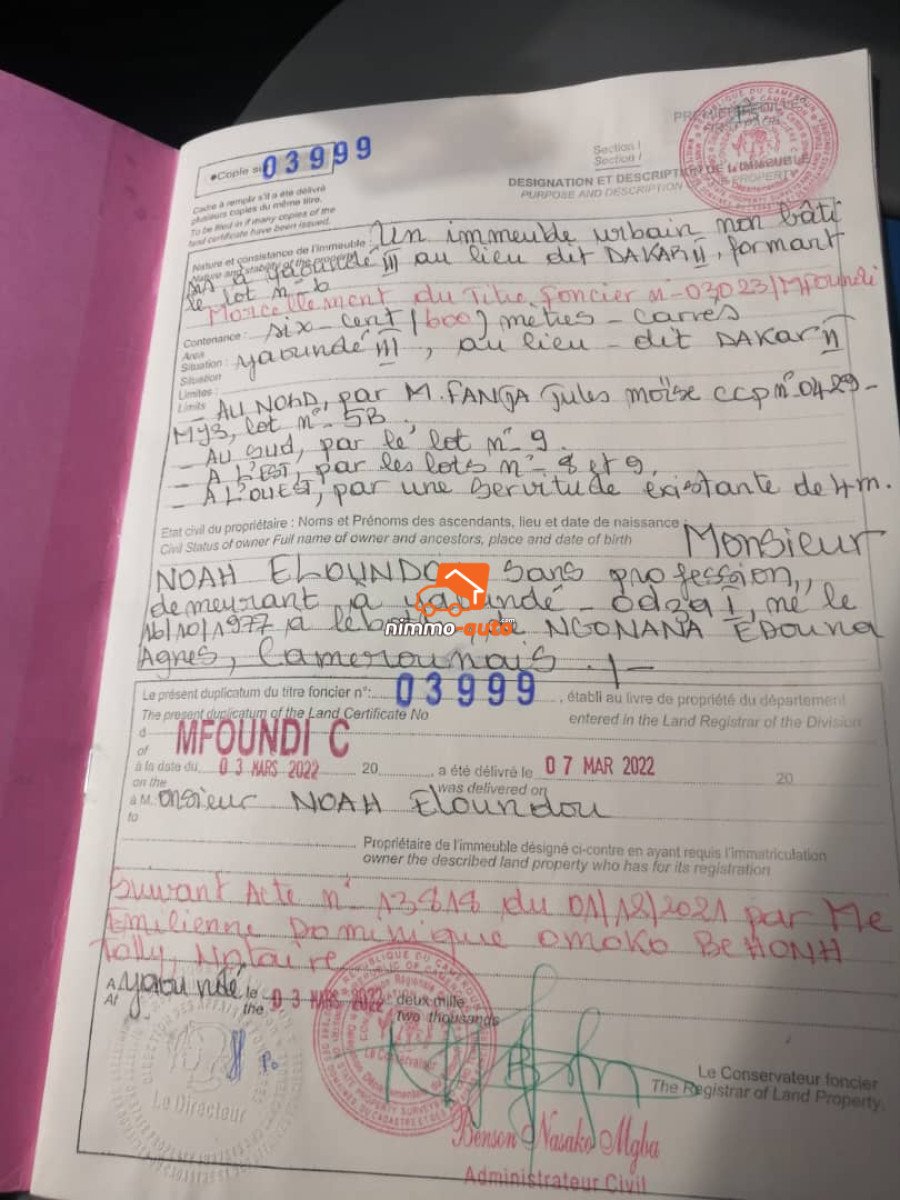 Copie s 03999
Section I
Section I
DESIGNATION ET DESCRIPTION DE L'IMMEUBLE
PURPOSE AND DESCRIPTION PROPERTY
Cadre à remplir s'il a été délivré
plusieurs copies du même titre.
To be filled in if many copies of the
land certificate have been issued.
Nature et consistance de l'immeuble Un immeuble urbain non bâti
Nature and stability of the property
sis à yaoundé III au lieu dit DAKAR II, formant
le lot n- 6
Morcellement du Titre foncier n- 03023/Mfoundi
Contenance : six-cent (600) mètres - carrés
Area
Situation : yaoundé III, au lieu - dit DAKAR II
Situation
Limites :
Limits AU NORD, par M. FANGA Jules moïse ccp n° 0429-
MYS, lot n°- 5B
- Au Sud, par le lot n°- 9.
- A L'EST, par les lots n°- 8 et 9.
- A L'OUEST, par une servitude existante de 4m.
Etat civil du propriétaire : Noms et Prénoms des ascendants, lieu et date de naissance
Civil Status of owner Full name of owner and ancestors, place and date of birth Monsieur
NOAH ELOUNDOU sans profession,
demeurant à yaoundé - odza I, né le
16/10/1977 à de NGONANA EDOUNA
Agnes, Camerounais ./-
nimmo-auto.com
Le présent duplicatum du titre foncier n°: 03999, établi au livre de propriété du département
The present duplicatum of the Land Certificate No entered in the Land Registrar of the Division
d
of MFOUNDI C
à la date du 03 MARS 2022 20 , a été délivré le 07 MAR 2022 20
on the was delivered on
à M. onsieur NOAH Eloundou
to
Propriétaire de l'immeuble désigné ci-contre en ayant requis l'immatriculation
owner the described land property who has for its registration
Suivant Acte n°- 13818 du 01/12/2021 par Me
Emilienne Dominique OMOKO BEHONH
Tolly, Notaire
A yaoundé le 03 MARS 2022 deux mille
At the two thousands
Le Conservateur
Le Directeur
Le Conservateur foncier
The Registrar of Land Property.
Benson Nasako Mgba
Administrateur Civil